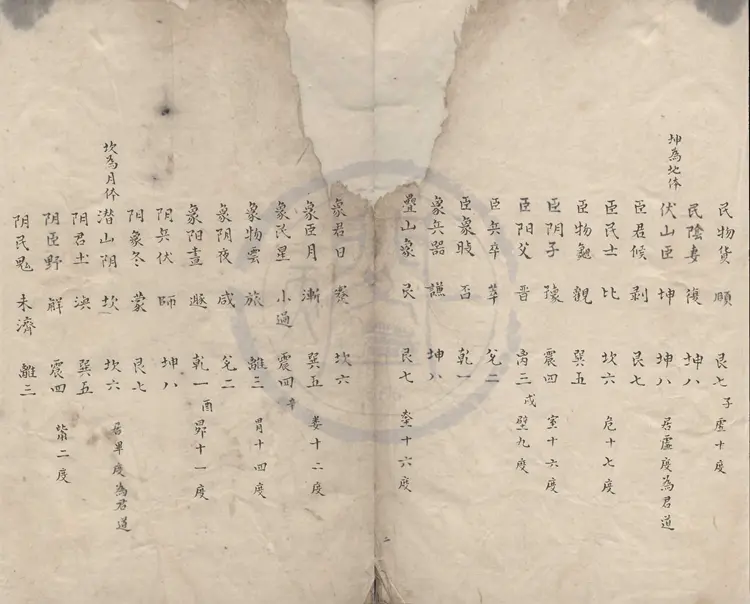 民物貨 頤 艮七 子 虛十度
民陰妻 復 坤八
坤為地体 伏山臣 坤 坤八 居虛度為君道
臣君候 剥 艮七
臣民士 比 坎六 危十七度
臣物龜 觀 巽五
臣阴子 豫 震四 室十六度
臣阳父 晋 离三 戌 壁九度
臣兵卒 萃 兌二
臣象 否 乾一
象兵器 謙 坤八
疊山象 艮 艮七 奎十六度
象君日 蹇 坎六
象臣月 漸 巽五 婁十二度
象民星 小過 震四 辛
象物雲 旅 離三 胃十四度
象阴夜 咸 兌二
象阳晝 遯 乾一 酉 昴十一度
阴兵伏 師 坤八
阴象冬 蒙 艮七
坎為月体 潜山阴 坎 坎六 居畢度為君道
阴君土 渙 巽五
阴臣野 解 震四 觜二度
阴民鬼 未濟 離三
二